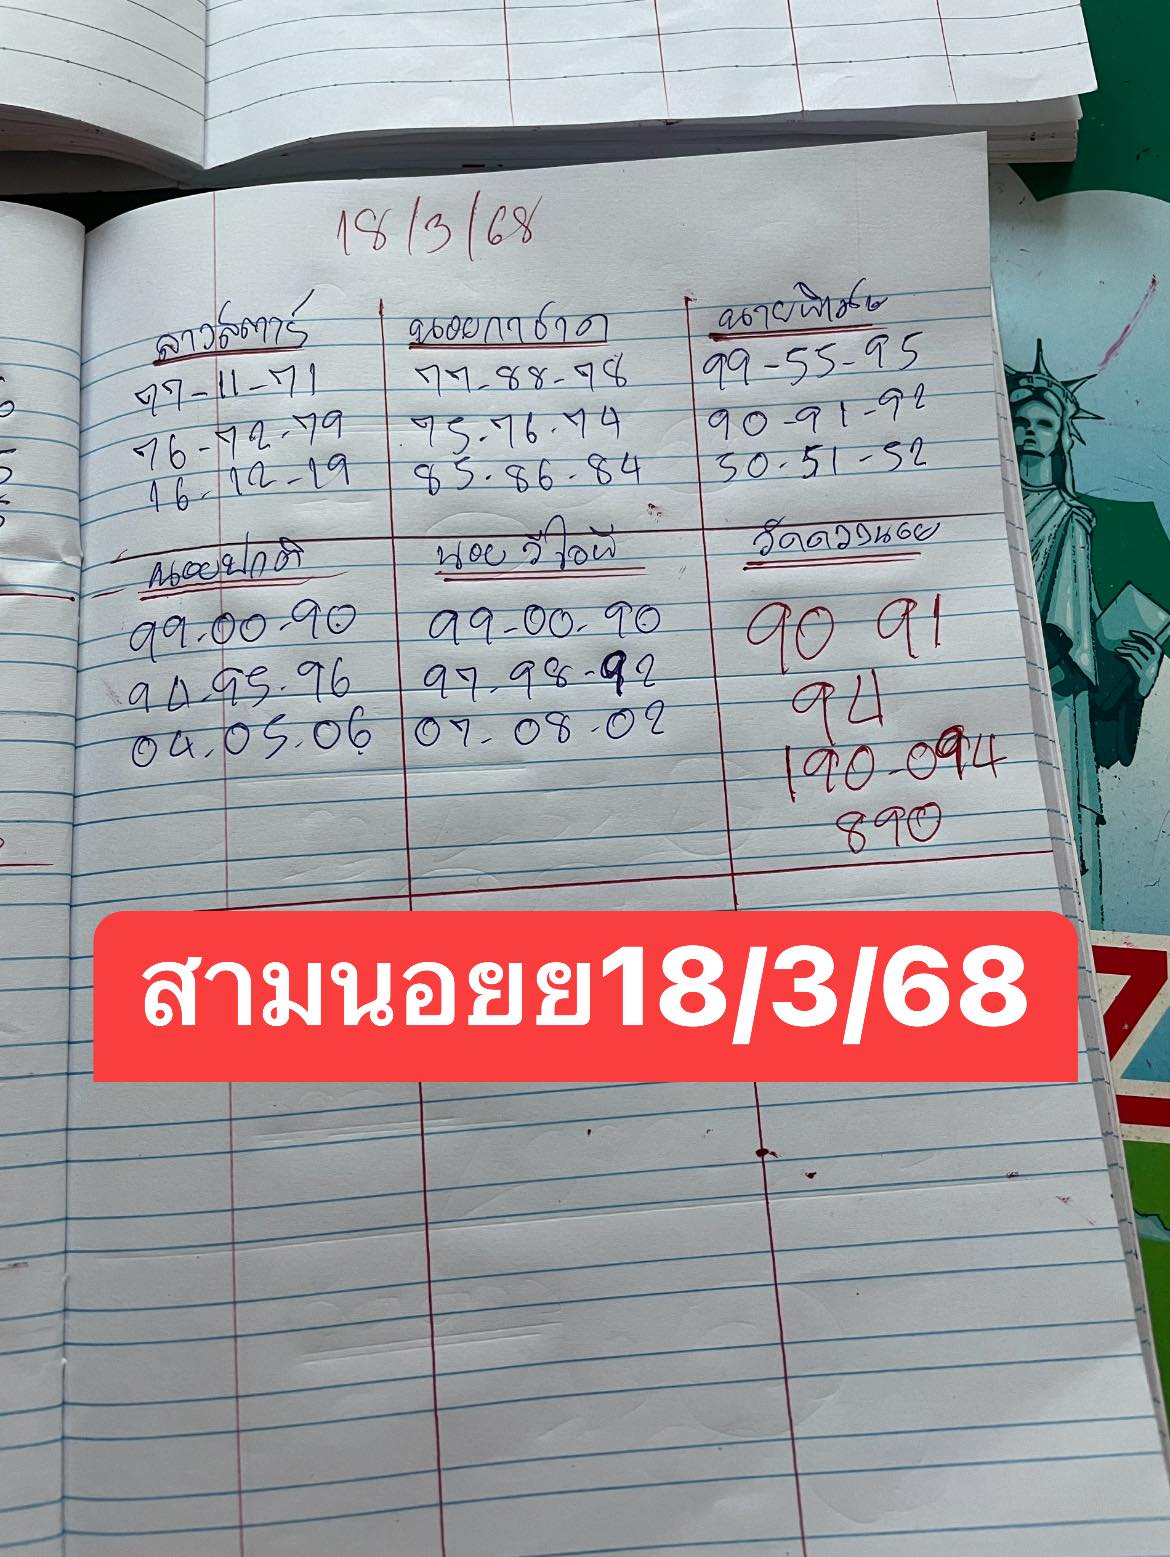 18/3/68
ลาวสตาร์
77-11-71
76-72-79
16-12-19
นอยกาชาด
77-88-78
75-76-74
85-86-84
99-55-95
90-91-92
50-51-52
นอยปกติ
99-00-90
94-95-96
04-05-06
นอย วีไอพี
99-00-90
97-98-92
07-08-02
90 91
94
190-094
890
สามนอยย18/3/68
Z